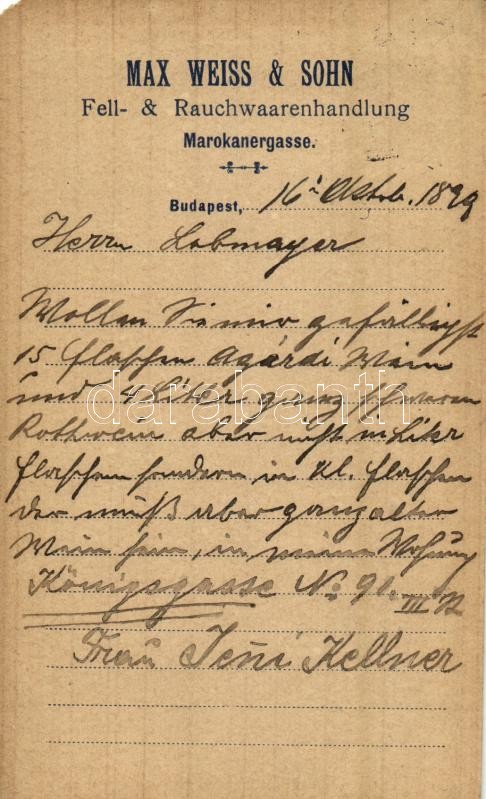 MAX WEISS & SOHN
Fell- & Rauchwaarenhandlung
Marokanergasse.
Budapest, 16 Oktob. 1899
Herrn Lobmayer
Wollen Sie mir gefälligst
15 Flaschen Agárdi Wein
und 4 Liter ganz schweren
Rothwein aber nicht in Liter
flaschen sondern in kl. Flaschen
der muß aber ganz alter
Wein sein, in meine Wohnung
Königsgasse No 91. III
Frau Jeni Kellner
darabanth